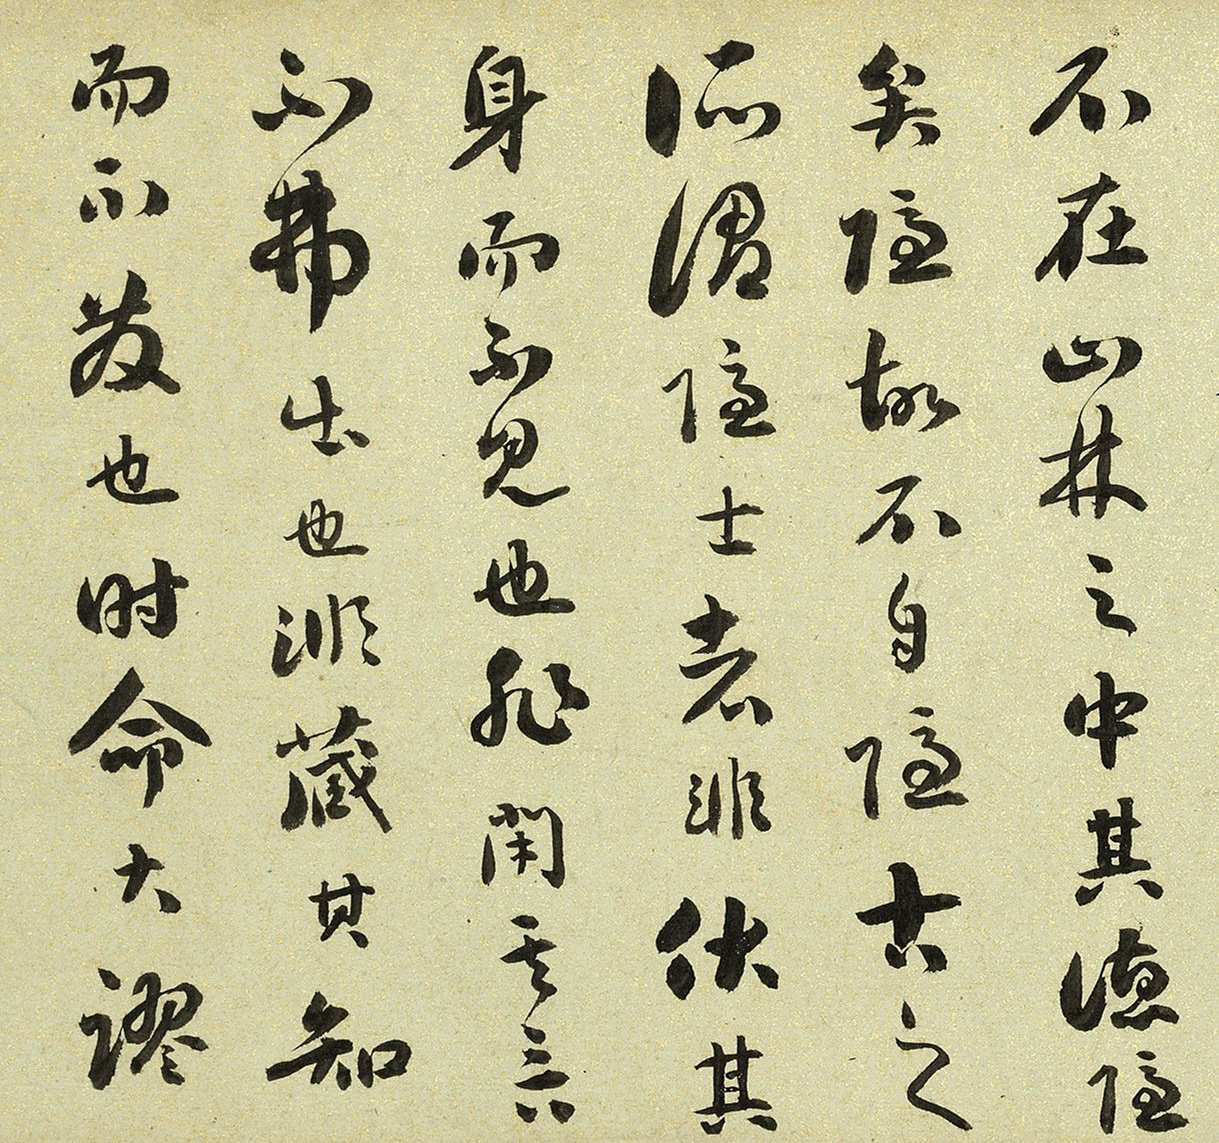 不在山林之中其德隱
矣隱故不自隱古之
所謂隱士者非伏其
身而不見也非閉其言
而弗出也非藏其知
而不發也時命大謬